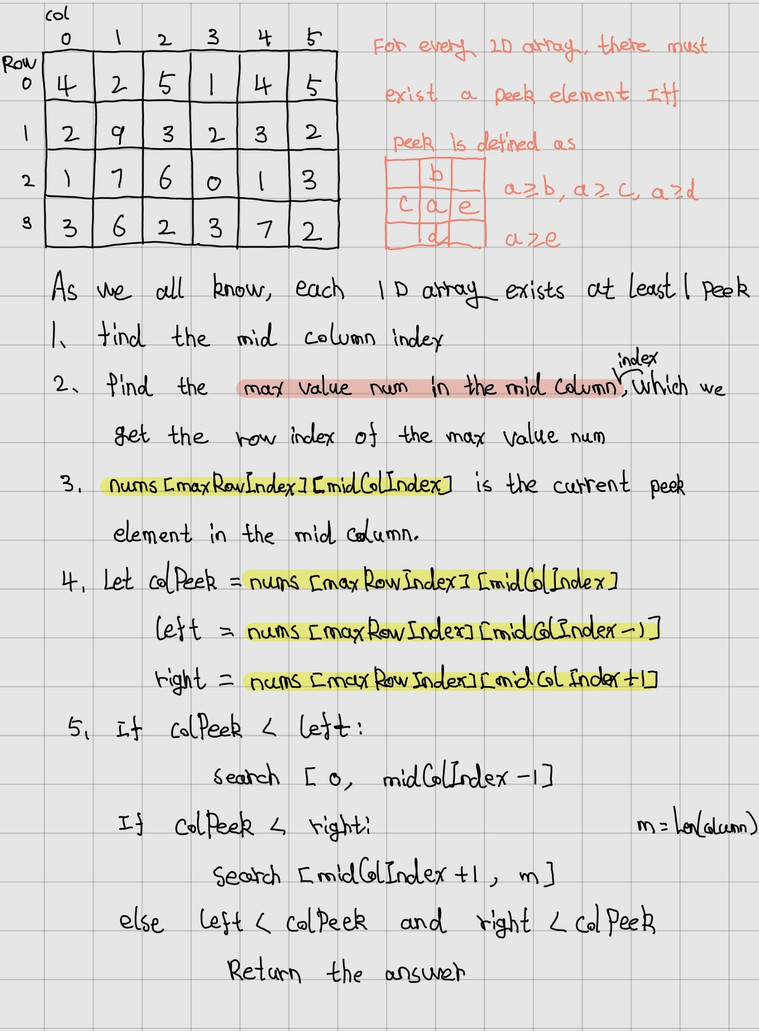 col
0 1 2 3 4 5
Row
0 4 2 5 1 4 5
1 2 9 3 2 3 2
2 1 7 6 0 1 3
3 3 6 2 3 7 2
For every 2D array, there must
exist a peek element Iff
peek is defined as
b
c a e
d
a≥b, a≥c, a≥d
a≥e
As we all know, each 1D array exists at least 1 peek
1. find the mid column index
2. find the max value num in the mid column index, which we
get the row index of the max value num
3. nums[maxRowIndex][midColIndex] is the current peek
element in the mid column.
4. Let colPeek = nums[maxRowIndex][midColIndex]
left = nums[maxRowIndex][midColIndex-1]
right = nums[maxRowIndex][midColIndex+1]
5. If colPeek < left:
search [0, midColIndex-1]
If colPeek < right:
m = len(column)
search [midColIndex+1, m]
else left < colPeek and right < colPeek
Return the answer